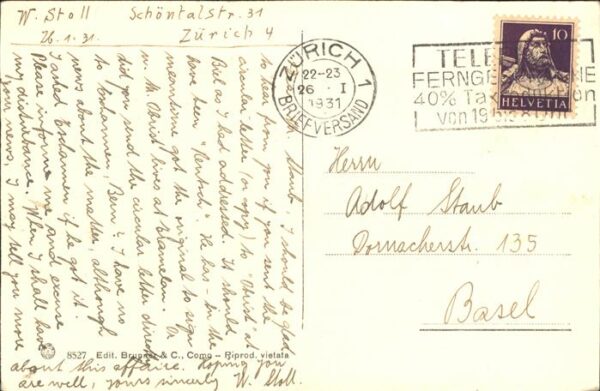 W. Stoll Schöntalstr. 31
26.1.31. Zürich 4
Staub, I should be glad
to hear from you if you sent the
circular-letter (or copy) to "Obrist" at
Biel as I had addressed. It should
have been "Rentsch". He has in the
meantime got the original to sign
Mr. Obrist lives at
did you send the circular letter directly
to Bern? I have no
news about the matter, although
I asked if he got it.
Please inform me and excuse
my disturbance. When I shall have
your news, I may tell you more
about this affaire. Hoping you
are well, yours sincerely W. Stoll.
8527 Edit. Brunner & C., Como - Riprod. vietata
ZÜRICH 1
22-23
26. I
1931
BRIEFVERSAND
10
HELVETIA
40%
von 19
Herrn
Adolf Staub
Dornacherstr. 135
Basel